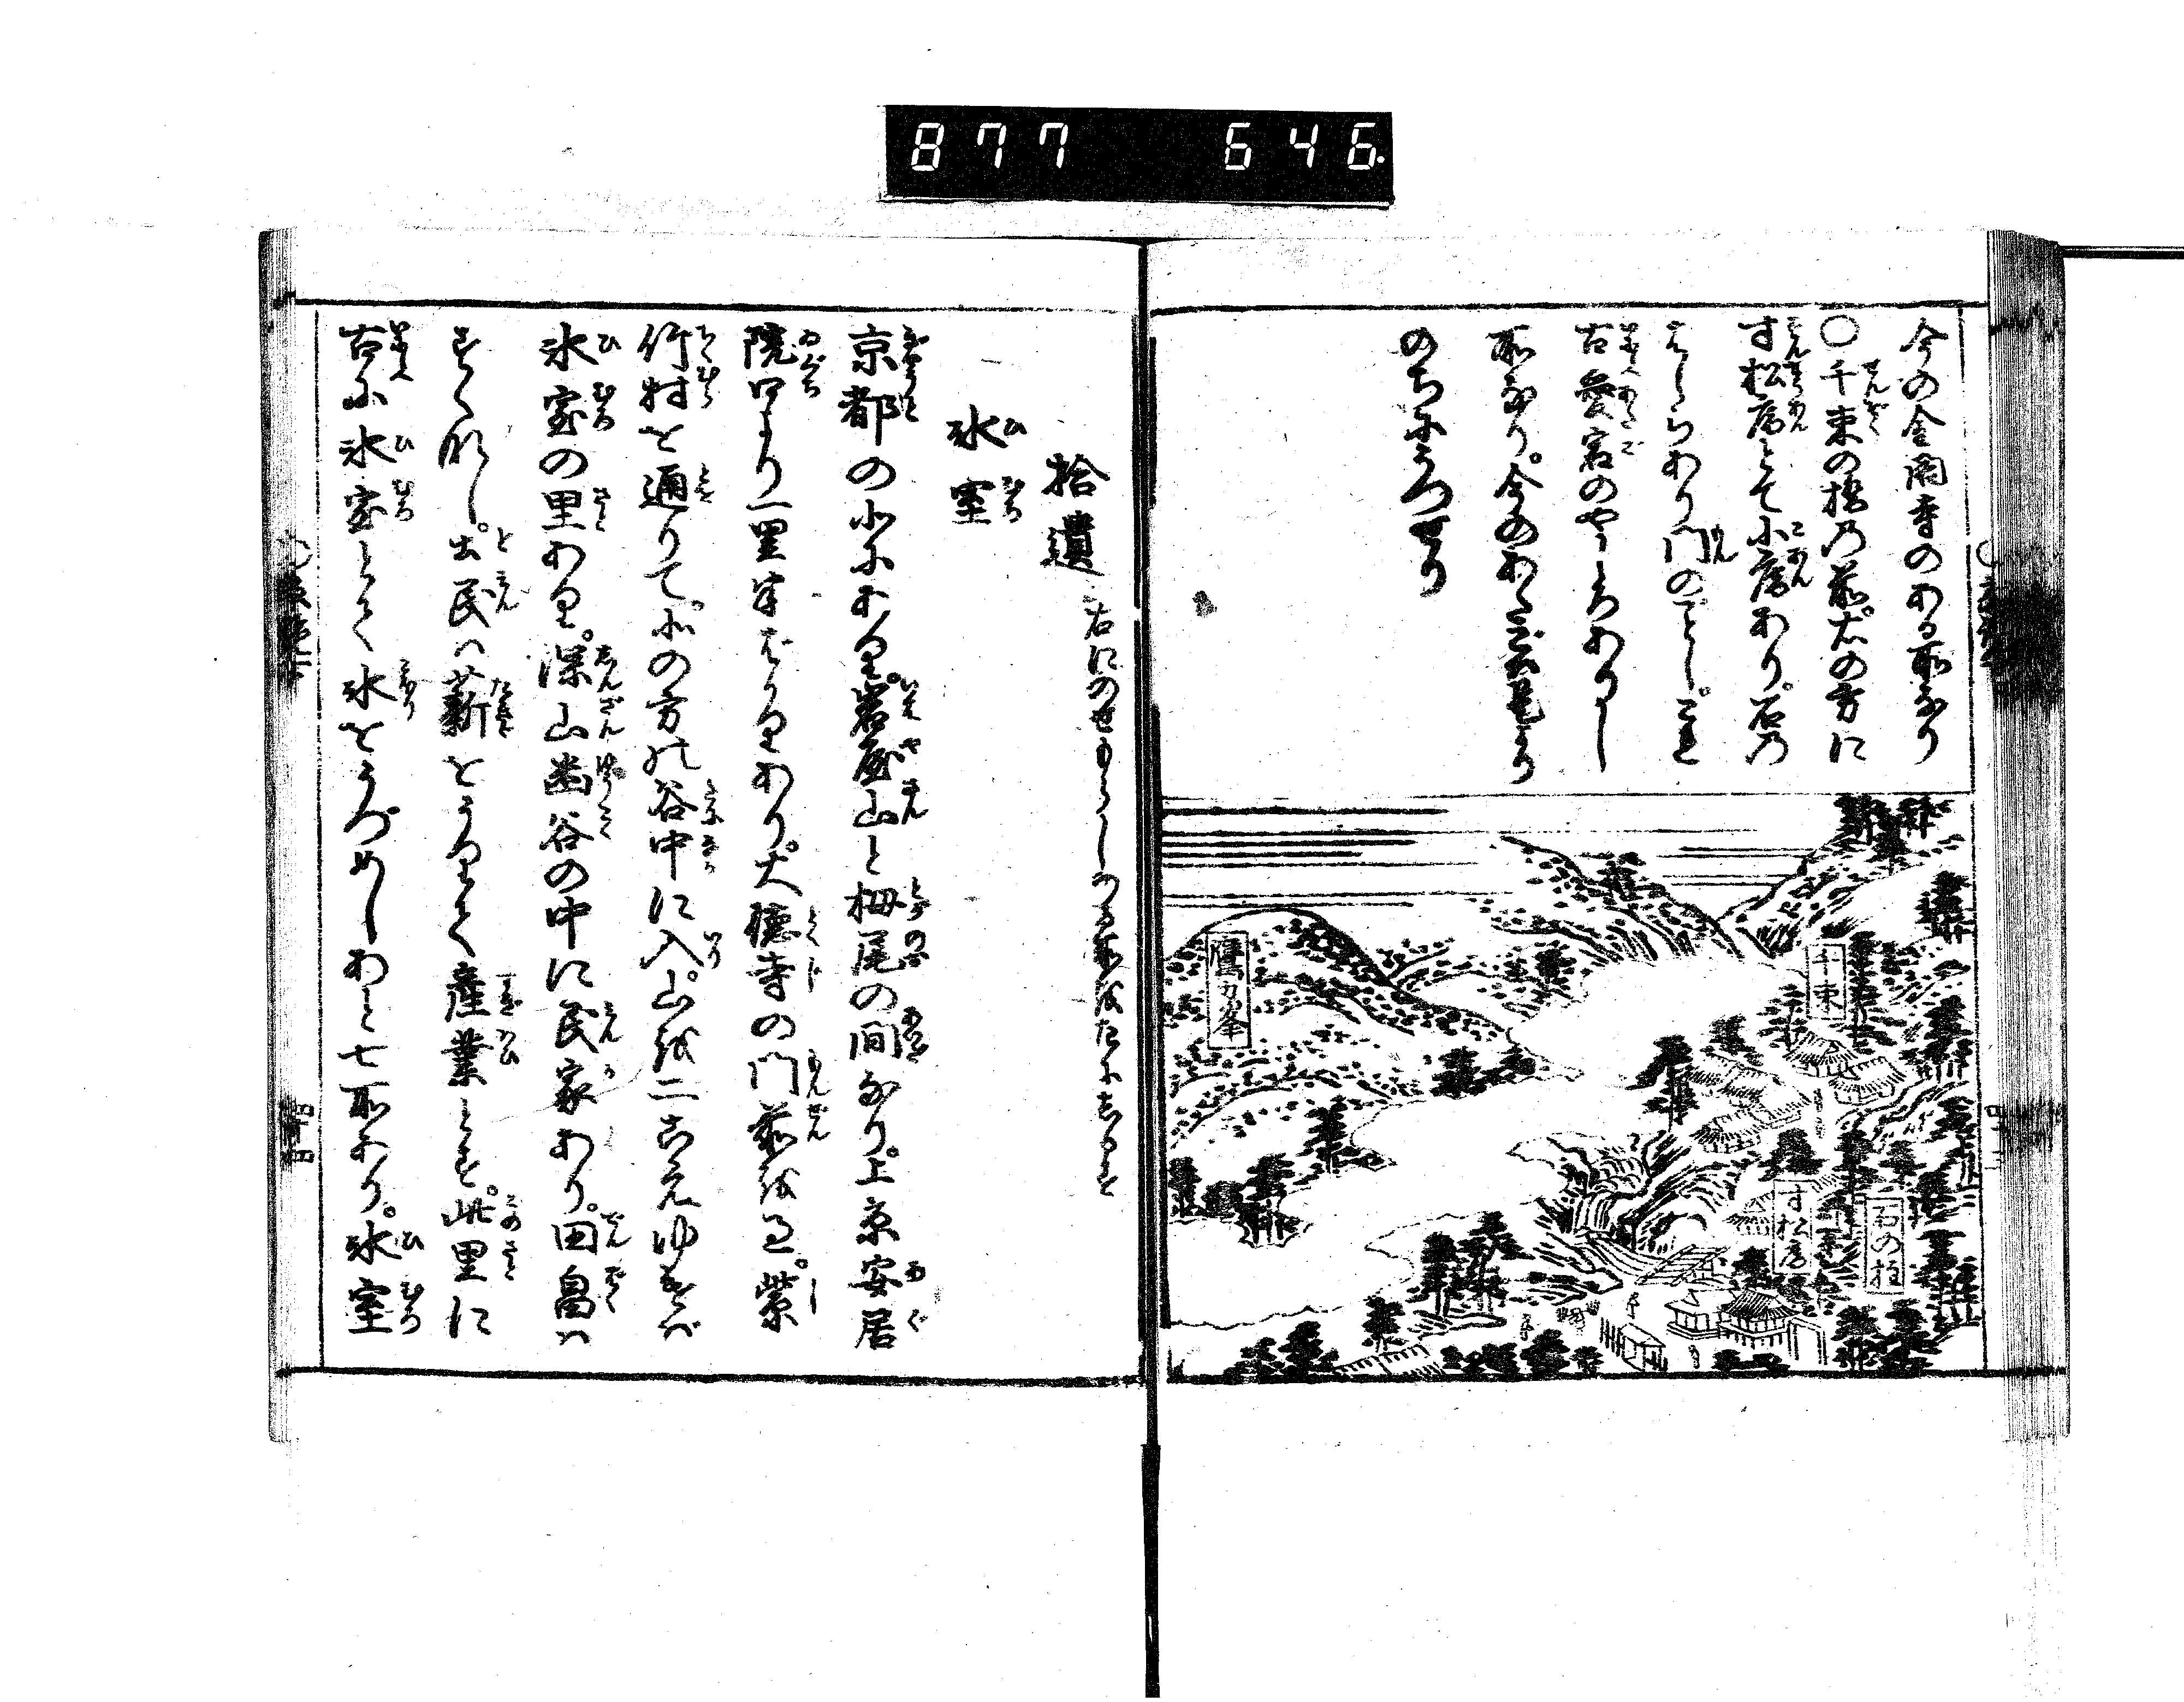 877 646.
今の金閣寺のある所なり
〇千束の橋乃前左の方に
寸松庵とて小庵あり。石乃
はしらあり門のごとし。これ
古愛宕のやしろありし
所なり。今のあたご
のちにうつせり
鷹カ峯
千束
寸松庵
石の柱
拾遺
右にのせもらしつる所をたに
氷室
京都の北にあり。岩屋山と栂尾の間なり。上京安居
院口より一里半ばかりあり。大徳寺の門前を過。紫
竹村を通りて。北の方の谷中に入。山を二つこえゆけば
氷室の里あり。深山幽谷の中に民家あり。田畠は
すくなし。土民は薪をうりて産業とす。此里に
古に氷室とて氷をうづめしあと七所あり。氷室